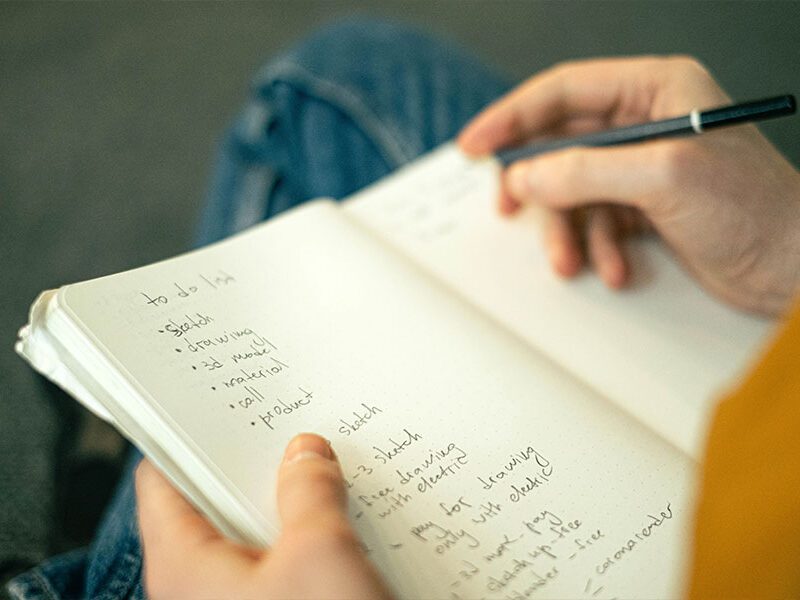 to do list
• sketch
• drawing
• 3d model
• material
• call
• product
sketch
2-3 sketch
- free drawing
with electric
- pay for drawing
only with electric
- 3d more - pay
- sketch up - free
- free
= corona render